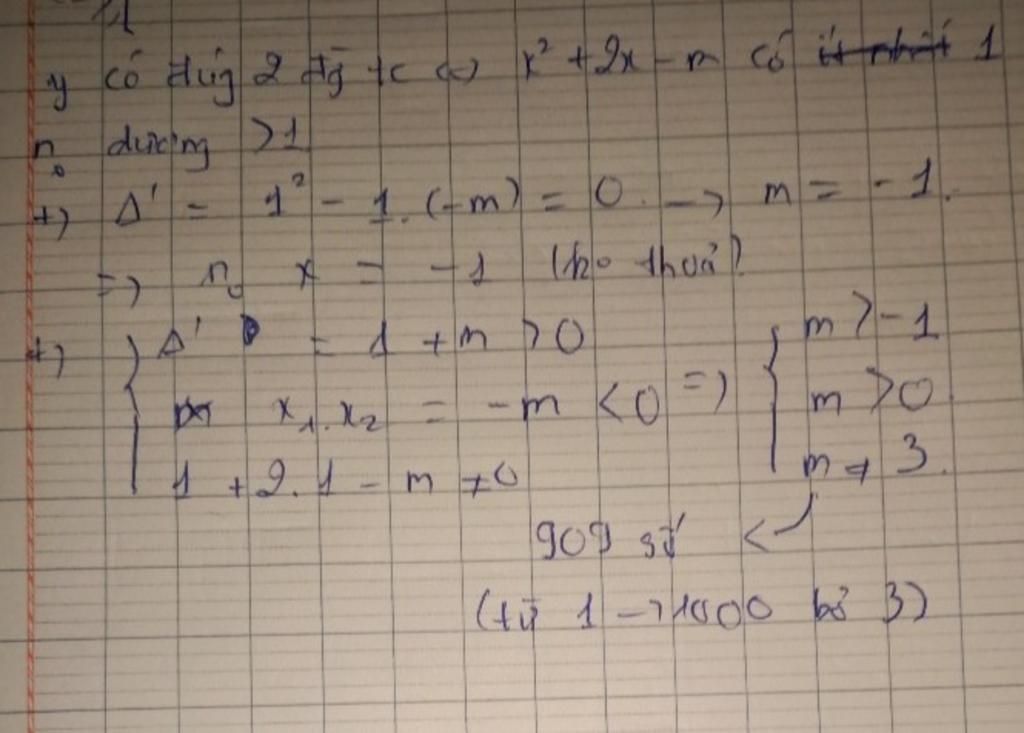 y có đúg 2 đg tc <=> x² + 2x - m có ít nhất 1
n₀ dương >1
+) Δ' = 1² - 1.(-m) = 0. -> m = -1.
=> n₀ x = -1 (ko thoả)
+) { Δ' = 1 + m > 0 { m > -1
x₁.x₂ = -m < 0 => m > 0
1 + 2.1 - m ≠ 0 m ≠ 3.
909 số <
(từ 1 -> 1000 bỏ 3)